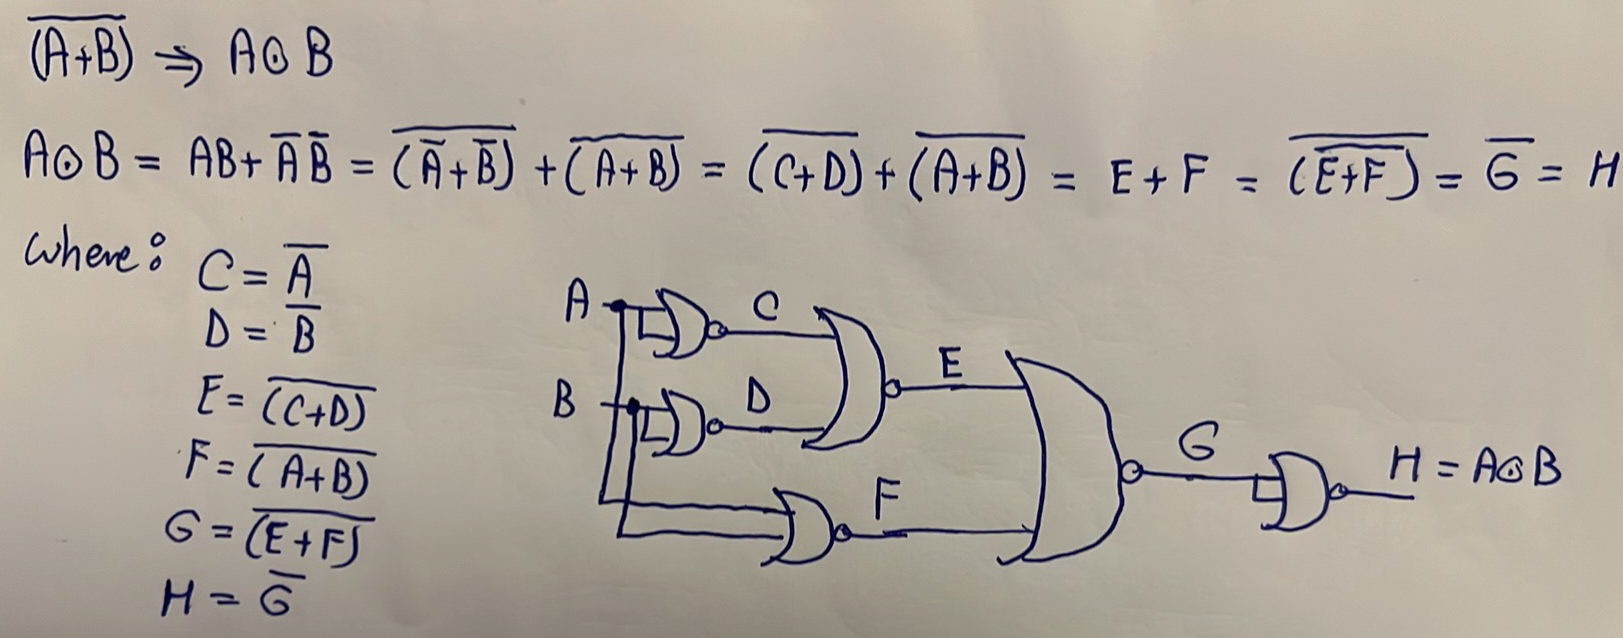 (A+B)̅ ⇒ A⊙B
A⊙B = AB + A̅ B̅ = \overline{(A̅+B̅)} + \overline{(A+B)} = \overline{(C+D)} + \overline{(A+B)} = E + F = \overline{(\overline{E+F})} = G̅ = H
where:
C = A̅
D = B̅
E = \overline{(C+D)}
F = \overline{(A+B)}
G = \overline{(E+F)}
H = G̅
A C
B D
E
F
G
H = A⊙B